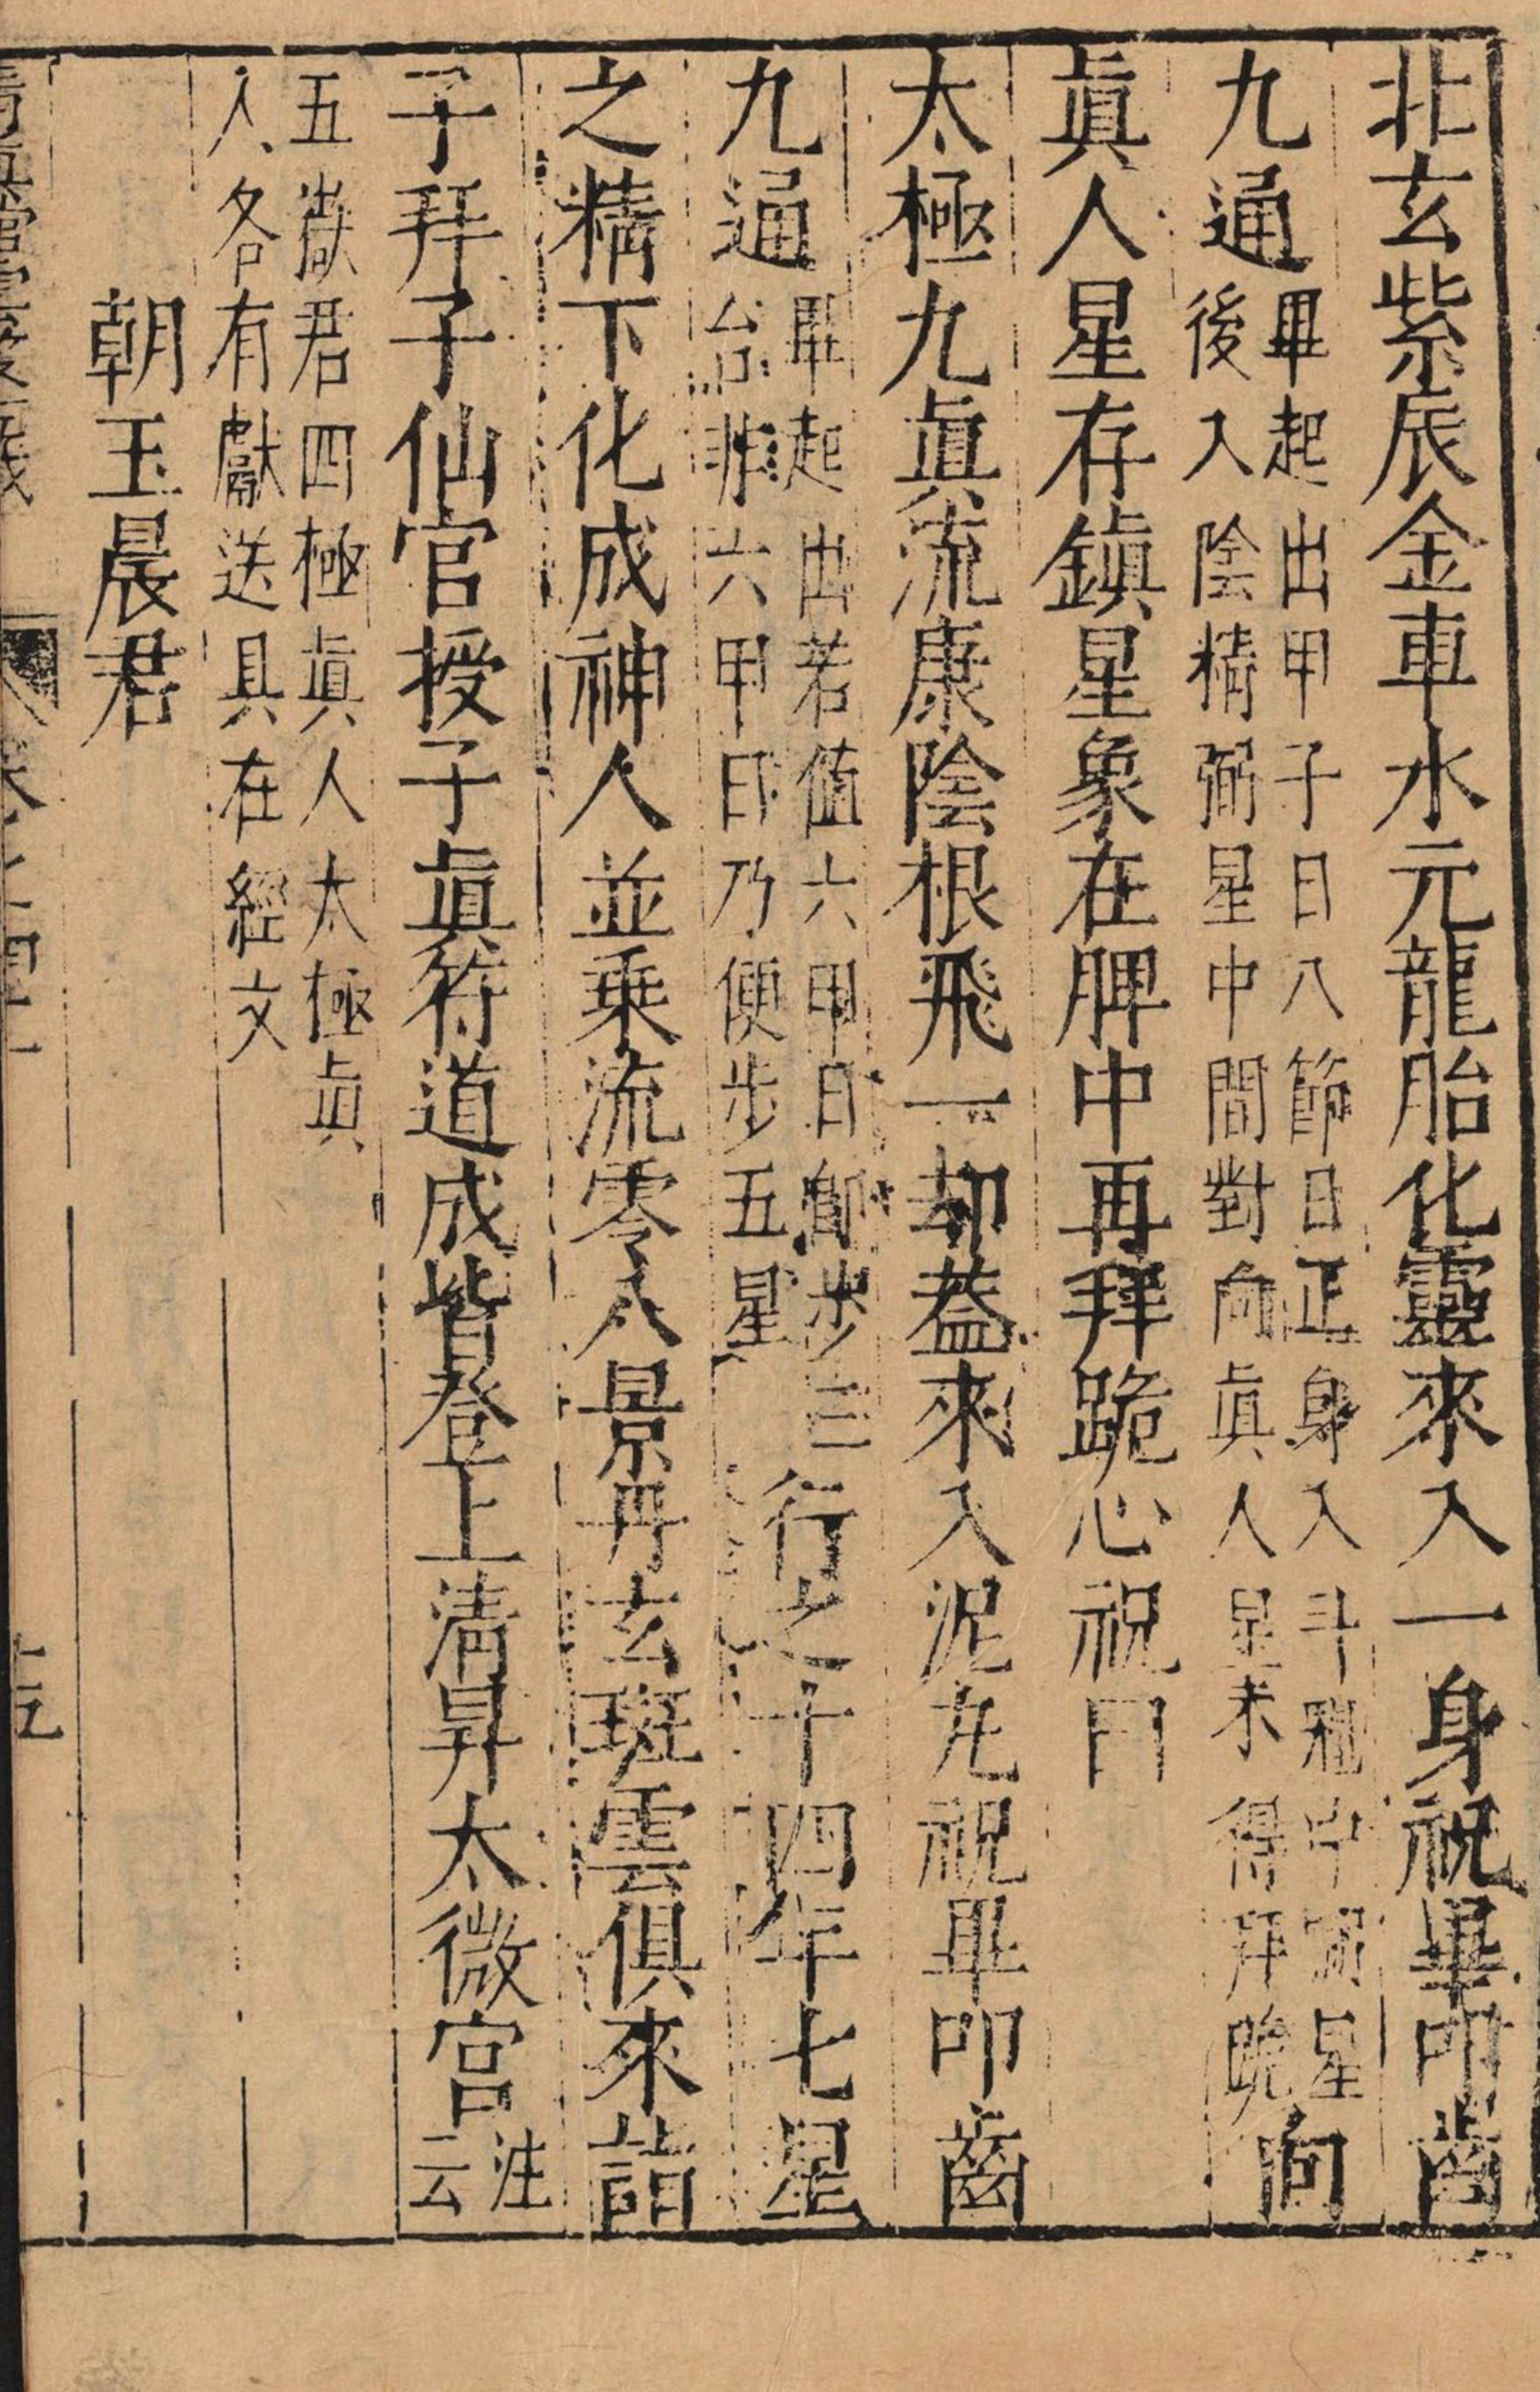 北玄紫辰金車水元龍胎化靈來入一身祝畢叩齒
九通
畢起出甲子日八節日正身入斗魁中守弼星
後入陰精弼星中間對向眞人星末得拜跪
向
眞人星存鎭星星象在脾中再拜跪心祝曰
太極九眞流康陰根飛一却葢來入泥丸祝畢叩齒
九通
畢起出若值六甲日節步三
台非六甲日乃便步五星
行之十四年七星
之精下化成神人並乗流零八景丹玄斑雲俱來詣
子拜子仙官授子眞符道成皆登上清昇太微宮
注
云
五嶽君四極眞人太極眞
人各有獻送具在經文
朝玉晨君
清真館雲笈七籤 卷之二十一 十五